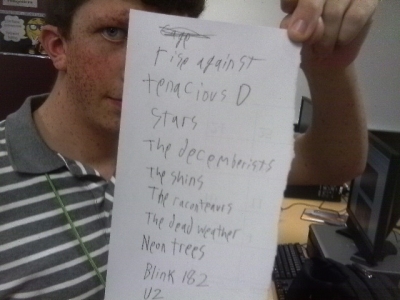 rise against
tenacious D
Stars
The decemberists
The shins
The raconteurs
The dead weather
Neon trees
Blink 182
U2